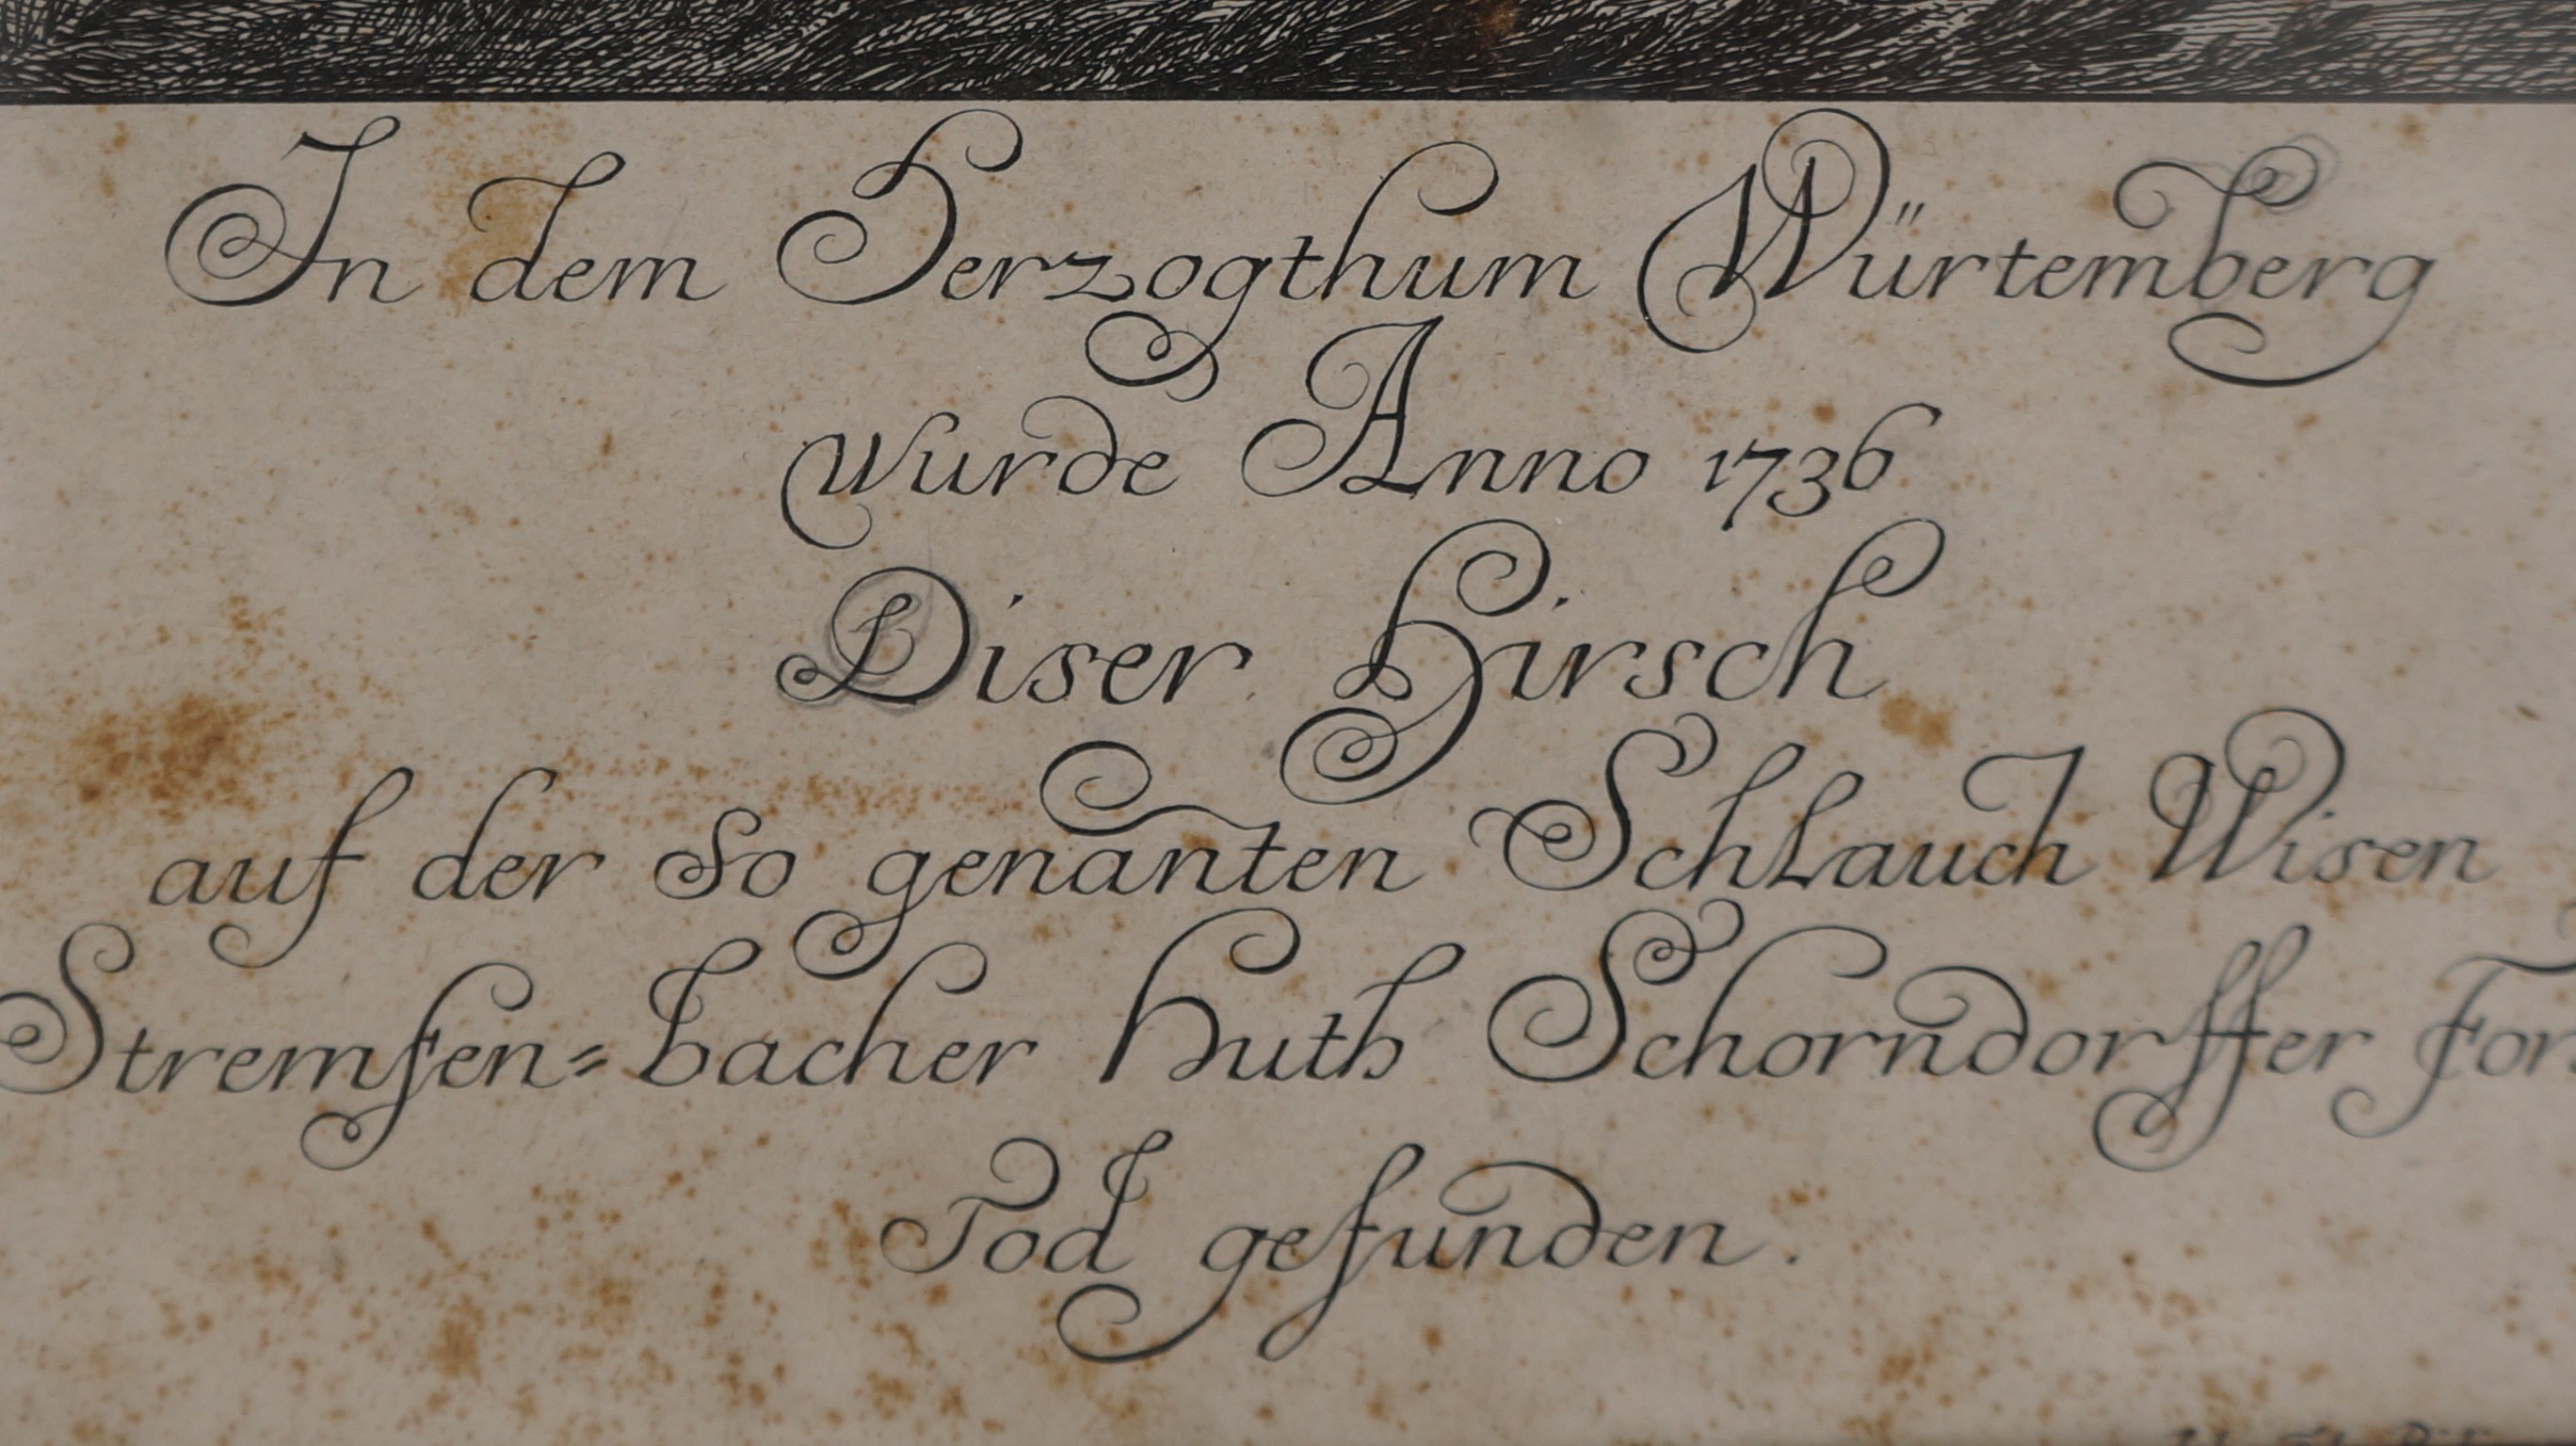 In dem Herzogthum Würtemberg
wurde Anno 1736
Diser Hirsch
auf der So genanten Schlauch Wisen
Stremsen=bacher Huth Schorndorffer
Tod gefunden.